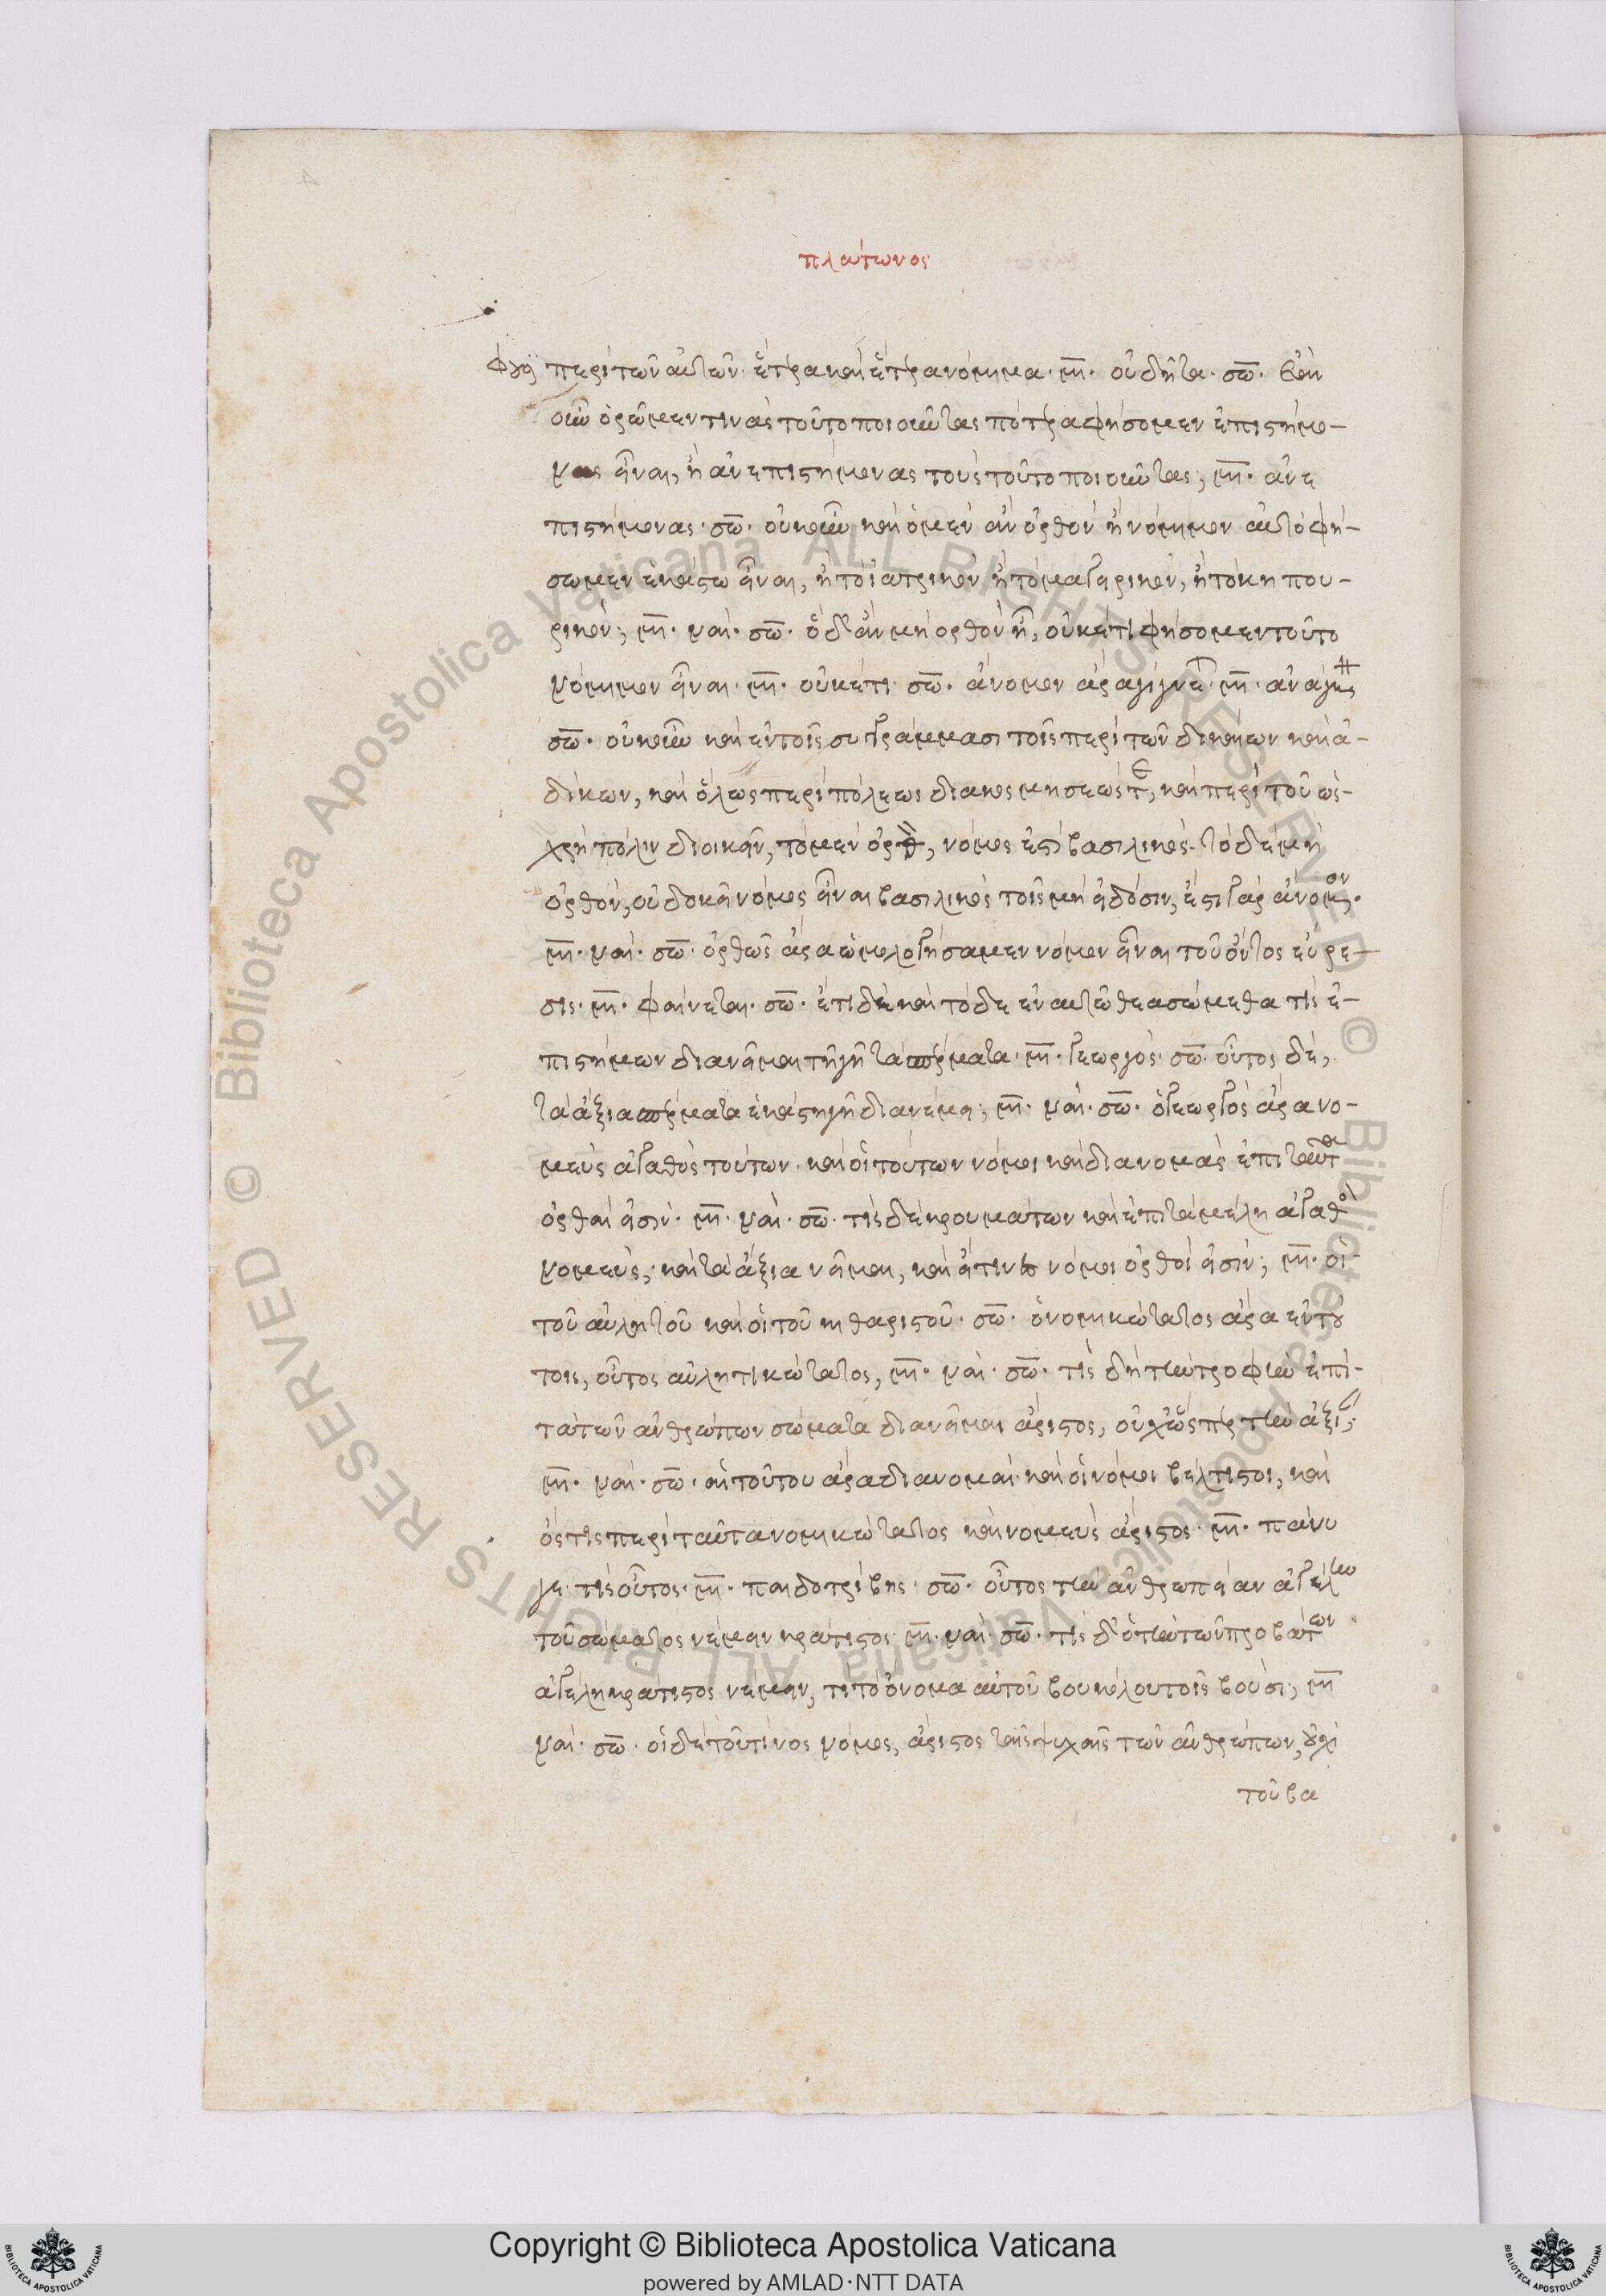 πλάτωνος
περὶ τῶν αὐτῶν ἕτερα καὶ ἕτερα νόμιμα· ἑτ. οὐ δῆτα· σω. ἐὰν
οὖν ὁρῶμεν τινὰς τοῦτο ποιοῦντας πότερα φήσομεν ἐπιστήμο-
νας εἶναι, ἢ ἀνεπιστήμονας τοὺς τοῦτο ποιοῦντας; ἑτ. ἀνε
πιστήμονας· σω. οὐκοῦν καὶ ὃ μὲν ἂν ὀρθὸν ἢ νόμιμον αὐτὸ φή-
σωμεν ἑκάστω εἶναι, ἢ τὸ ἰατρικὸν ἢ τὸ μαγειρικὸν, ἢ τὸ κηπου-
ρικόν; ἑτ. ναί· σω. ὃ δ' ἂν μὴ ὀρθὸν ἦ, οὐκέτι φήσομεν τοῦτο
νόμιμον εἶναι· ἑτ. οὐκέτι· σω. ἄνομον ἄρα γίγνεται· ἑτ. ἀνάγκη
σω. οὐκοῦν καὶ ἐν τοῖς συγγράμμασι τοῖς περὶ τῶν δικαίων καὶ ἀ-
δίκων, καὶ ὅλως περὶ πόλεως διακοσμήσεώς τε, καὶ περὶ τοῦ ὡς
χρὴ πόλιν διοικεῖν, τὸ μὲν ὀρθὸν, νόμος ἐστὶ βασιλικός· τὸ δὲ μὴ
ὀρθὸν, οὐ δοκεῖ νόμος εἶναι βασιλικὸς τοῖς μὴ εἰδόσιν, ἔστι γὰρ ἄνομον·
ἑτ. ναί· σω. ὀρθῶς ἄρα ὡμολογήσαμεν νόμον εἶναι τοῦ ὄντος εὕρε-
σις· ἑτ. φαίνεται· σω. ἔτι δὲ καὶ τόδε ἐν αὐτῶ θεασώμεθα τίς ἐ-
πιστήμων διανεῖμαι τῆ γῆ τὰ σπέρματα· ἑτ. γεωργός· σω. οὗτος δὲ,
τὰ ἄξια σπέρματα ἑκάστη γῆ διανέμει; ἑτ. ναί· σω. ὁ γεωργὸς ἄρα νο-
μεὺς ἀγαθὸς τούτων· καὶ οἱ τούτων νόμοι καὶ διανομαὶ ἐπὶ ταῦτα
ὀρθαί εἰσιν· ἑτ. ναί· σω. τίς δὲ κρουμάτων καὶ ἐπὶ τὰ μέλη ἀγαθὸς
νομεὺς; καὶ τὰ ἄξια νεῖμαι, καὶ οἱ τίνος νόμοι ὀρθοί εἰσιν; ἑτ. οἱ
τοῦ αὐλητοῦ καὶ οἱ τοῦ κιθαριστοῦ· σω. ὁ νομικώτατος ἄρα ἐν τού
τοις, οὗτος αὐλητικώτατος, ἑτ. ναί· σω. τίς δὴ τὴν τροφὴν ἐπὶ
τὰ τῶν ἀνθρώπων σώματα διανεῖμαι ἄριστος, οὐχ ὥσπερ τὴν ἀξίαν;
ἑτ. ναί· σω. αἱ τούτου ἄρα διανομαὶ καὶ οἱ νόμοι βέλτιστοι, καὶ
ὅς τις περὶ ταῦτα νομικώτατος καὶ νομεὺς ἄριστος· ἑτ. πάνυ
γε· τίς οὗτος· ἑτ. παιδοτρίβης· σω. οὗτος τὴν ἀνθρωπείαν ἀγέλην
τοῦ σώματος νέμειν κράτιστος· ἑτ. ναί· σω. τίς δ' ὁ τὴν τῶν προβάτων
ἀγέλην κράτιστος νέμειν, τί τὸ ὄνομα αὐτοῦ βουκόλου τοῖς βουσί; ἑτ
ναί· σω. οἱ δὲ τοῦ τίνος νόμος, ἄριστος ταῖς ψυχαῖς τῶν ἀνθρώπων, οὐχὶ
τοῦ βα
Copyright © Biblioteca Apostolica Vaticana
powered by AMLAD·NTT DATA